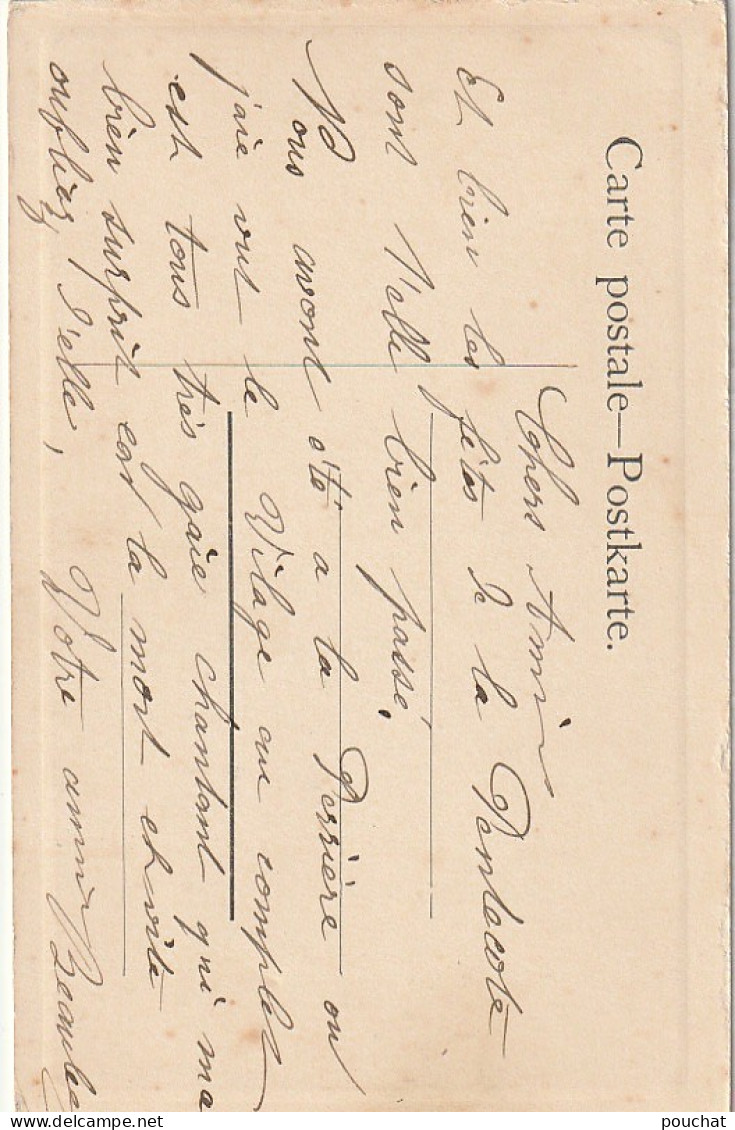 Carte postale—Postkarte.
Chers Amis
Et bien les fêtes de la Pentecote
sont t'elle bien passé,
Nous avont été a la Perrière ou
j'aie vut le Vilage au complet
est tous très gaie chantant qui ma
bien surprit est la mort est vite
oubliez, t'elle, Votre amie
pouchat